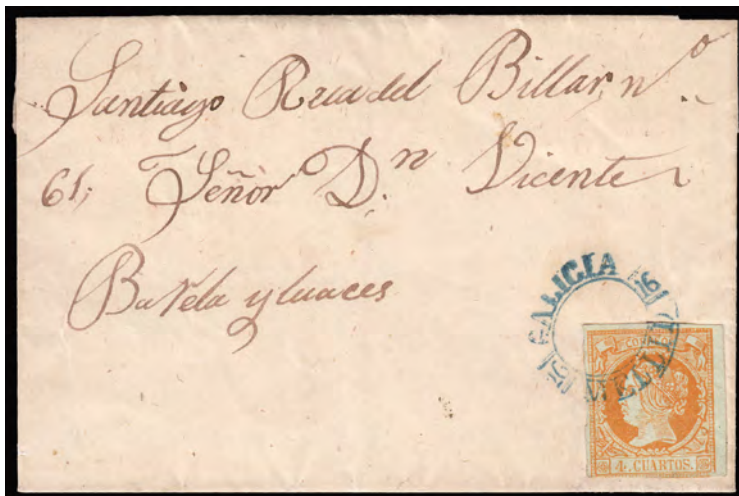 Santiago Rua del Billar, nº
61; Señor Dn Vicente
Barela y luaces
GALICIA
16
16
MELLID
CORREOS
4 CUARTOS.